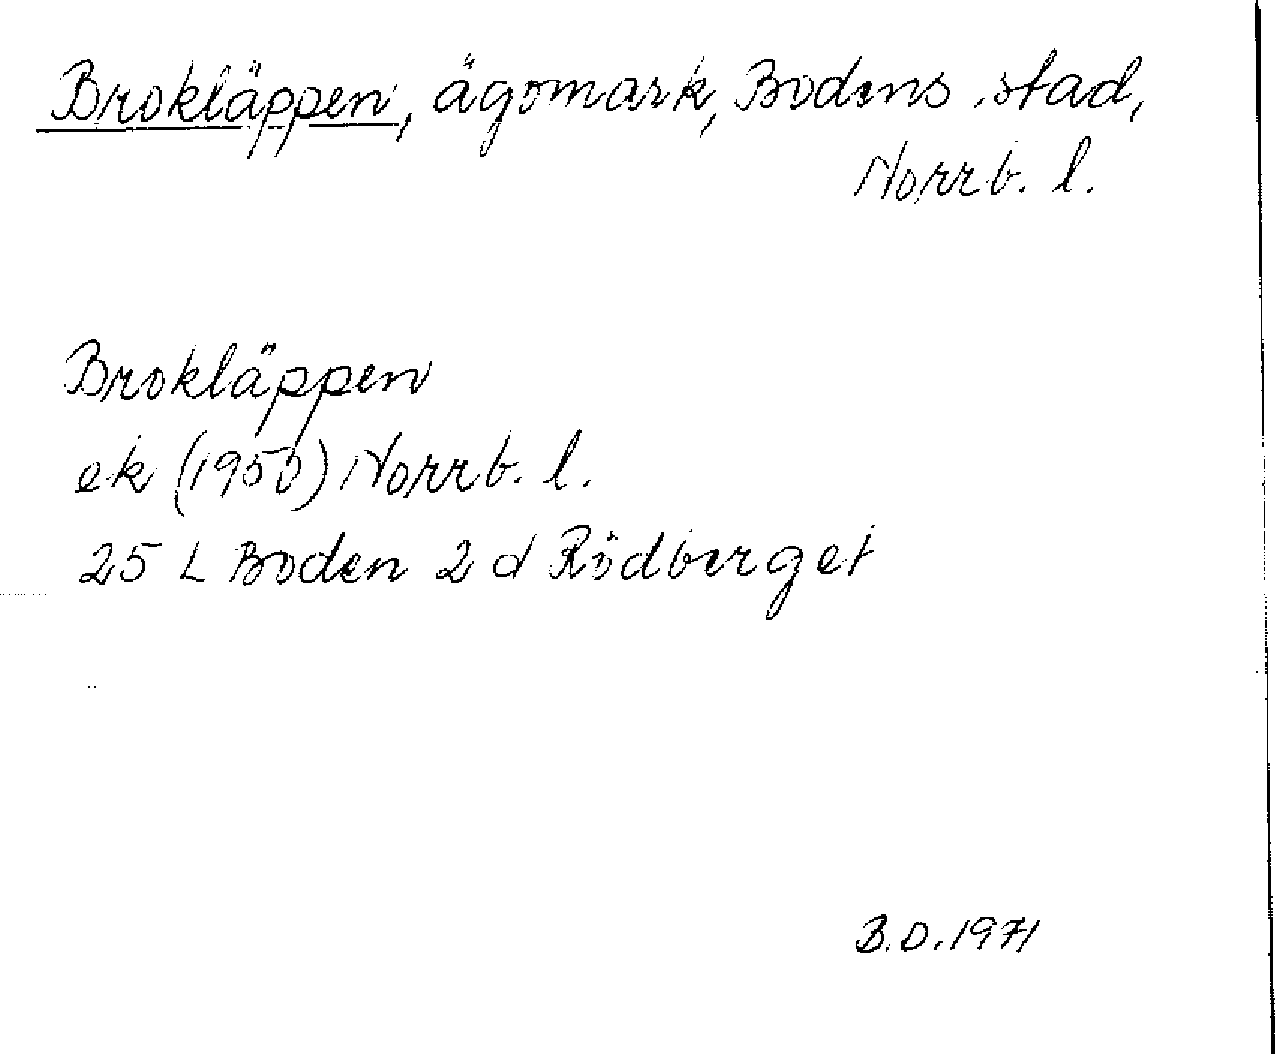 Brokläppen, ägomark, Bodens stad,
Norrb. l.
Brokläppen
ek (1950) Norrb. l.
25 L Boden 2 d Rödberget
B.D. 1971